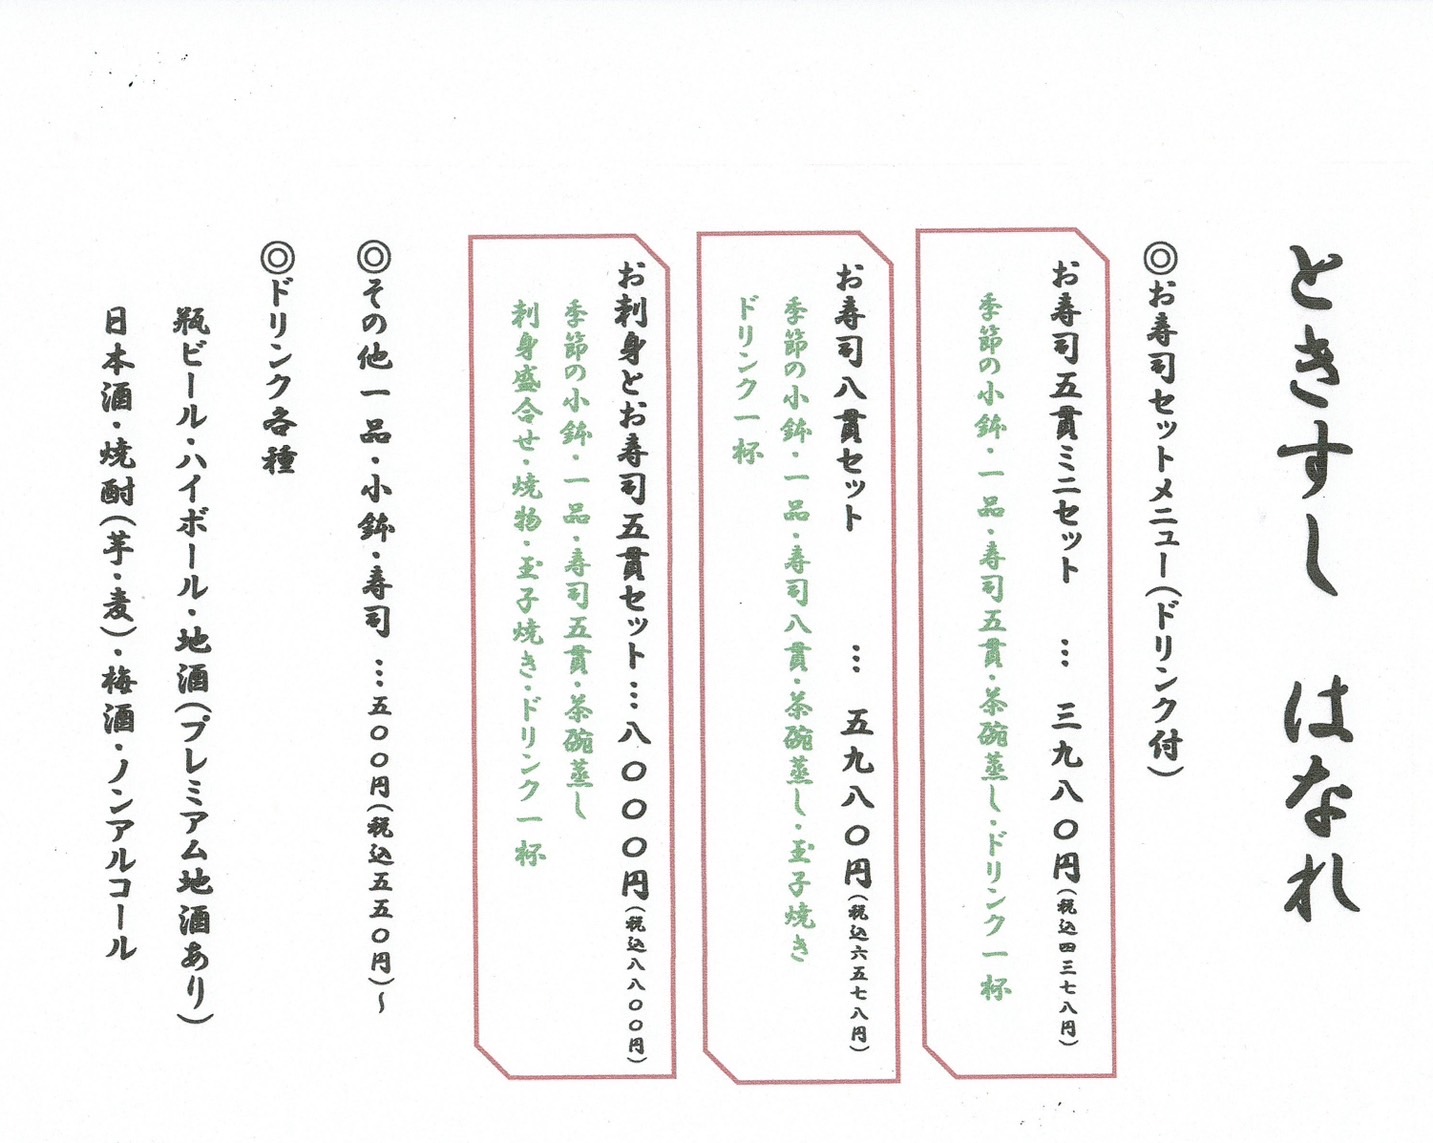 ときすし はなれ
◎お寿司セットメニュー(ドリンク付)
お寿司五貫ミニセット … 三九八〇円(税込四三七八円)
季節の小鉢・一品・寿司五貫・茶碗蒸し・ドリンク一杯
お寿司八貫セット … 五九八〇円(税込六五七八円)
季節の小鉢・一品・寿司八貫・茶碗蒸し・玉子焼き
ドリンク一杯
お刺身とお寿司五貫セット…八〇〇〇円(税込八八〇〇円)
季節の小鉢・一品・寿司五貫・茶碗蒸し
刺身盛合せ・焼物・玉子焼き・ドリンク一杯
◎その他一品・小鉢・寿司 …五〇〇円(税込五五〇円)~
◎ドリンク各種
瓶ビール・ハイボール・地酒(プレミアム地酒あり)
日本酒・焼酎(芋・麦)・梅酒・ノンアルコール